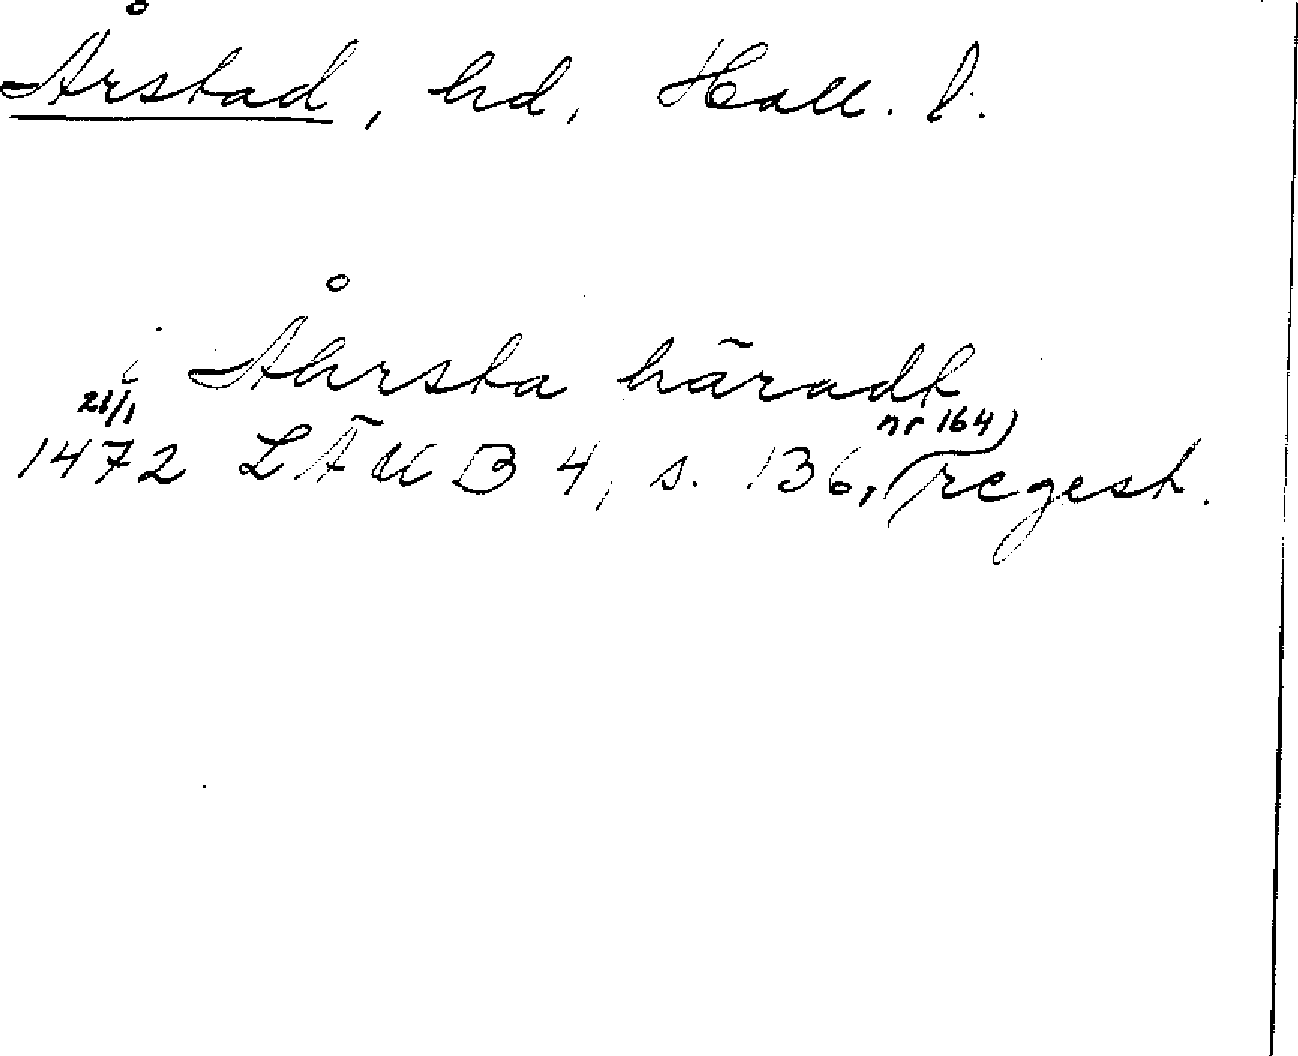 Årstad, hd, Hall. l.
i Åhrsta häradt
21/1
nr 164)
1472 LÄUB 4, s. 136, regest.